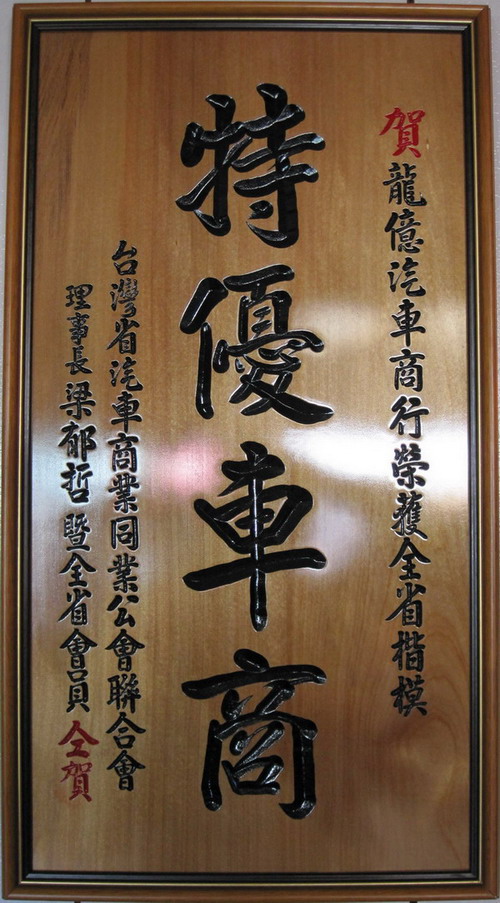 賀龍億汽車商行榮獲全省楷模
特優車商
台灣省汽車商業同業公會聯合會
理事長梁郁哲暨全省會員仝賀